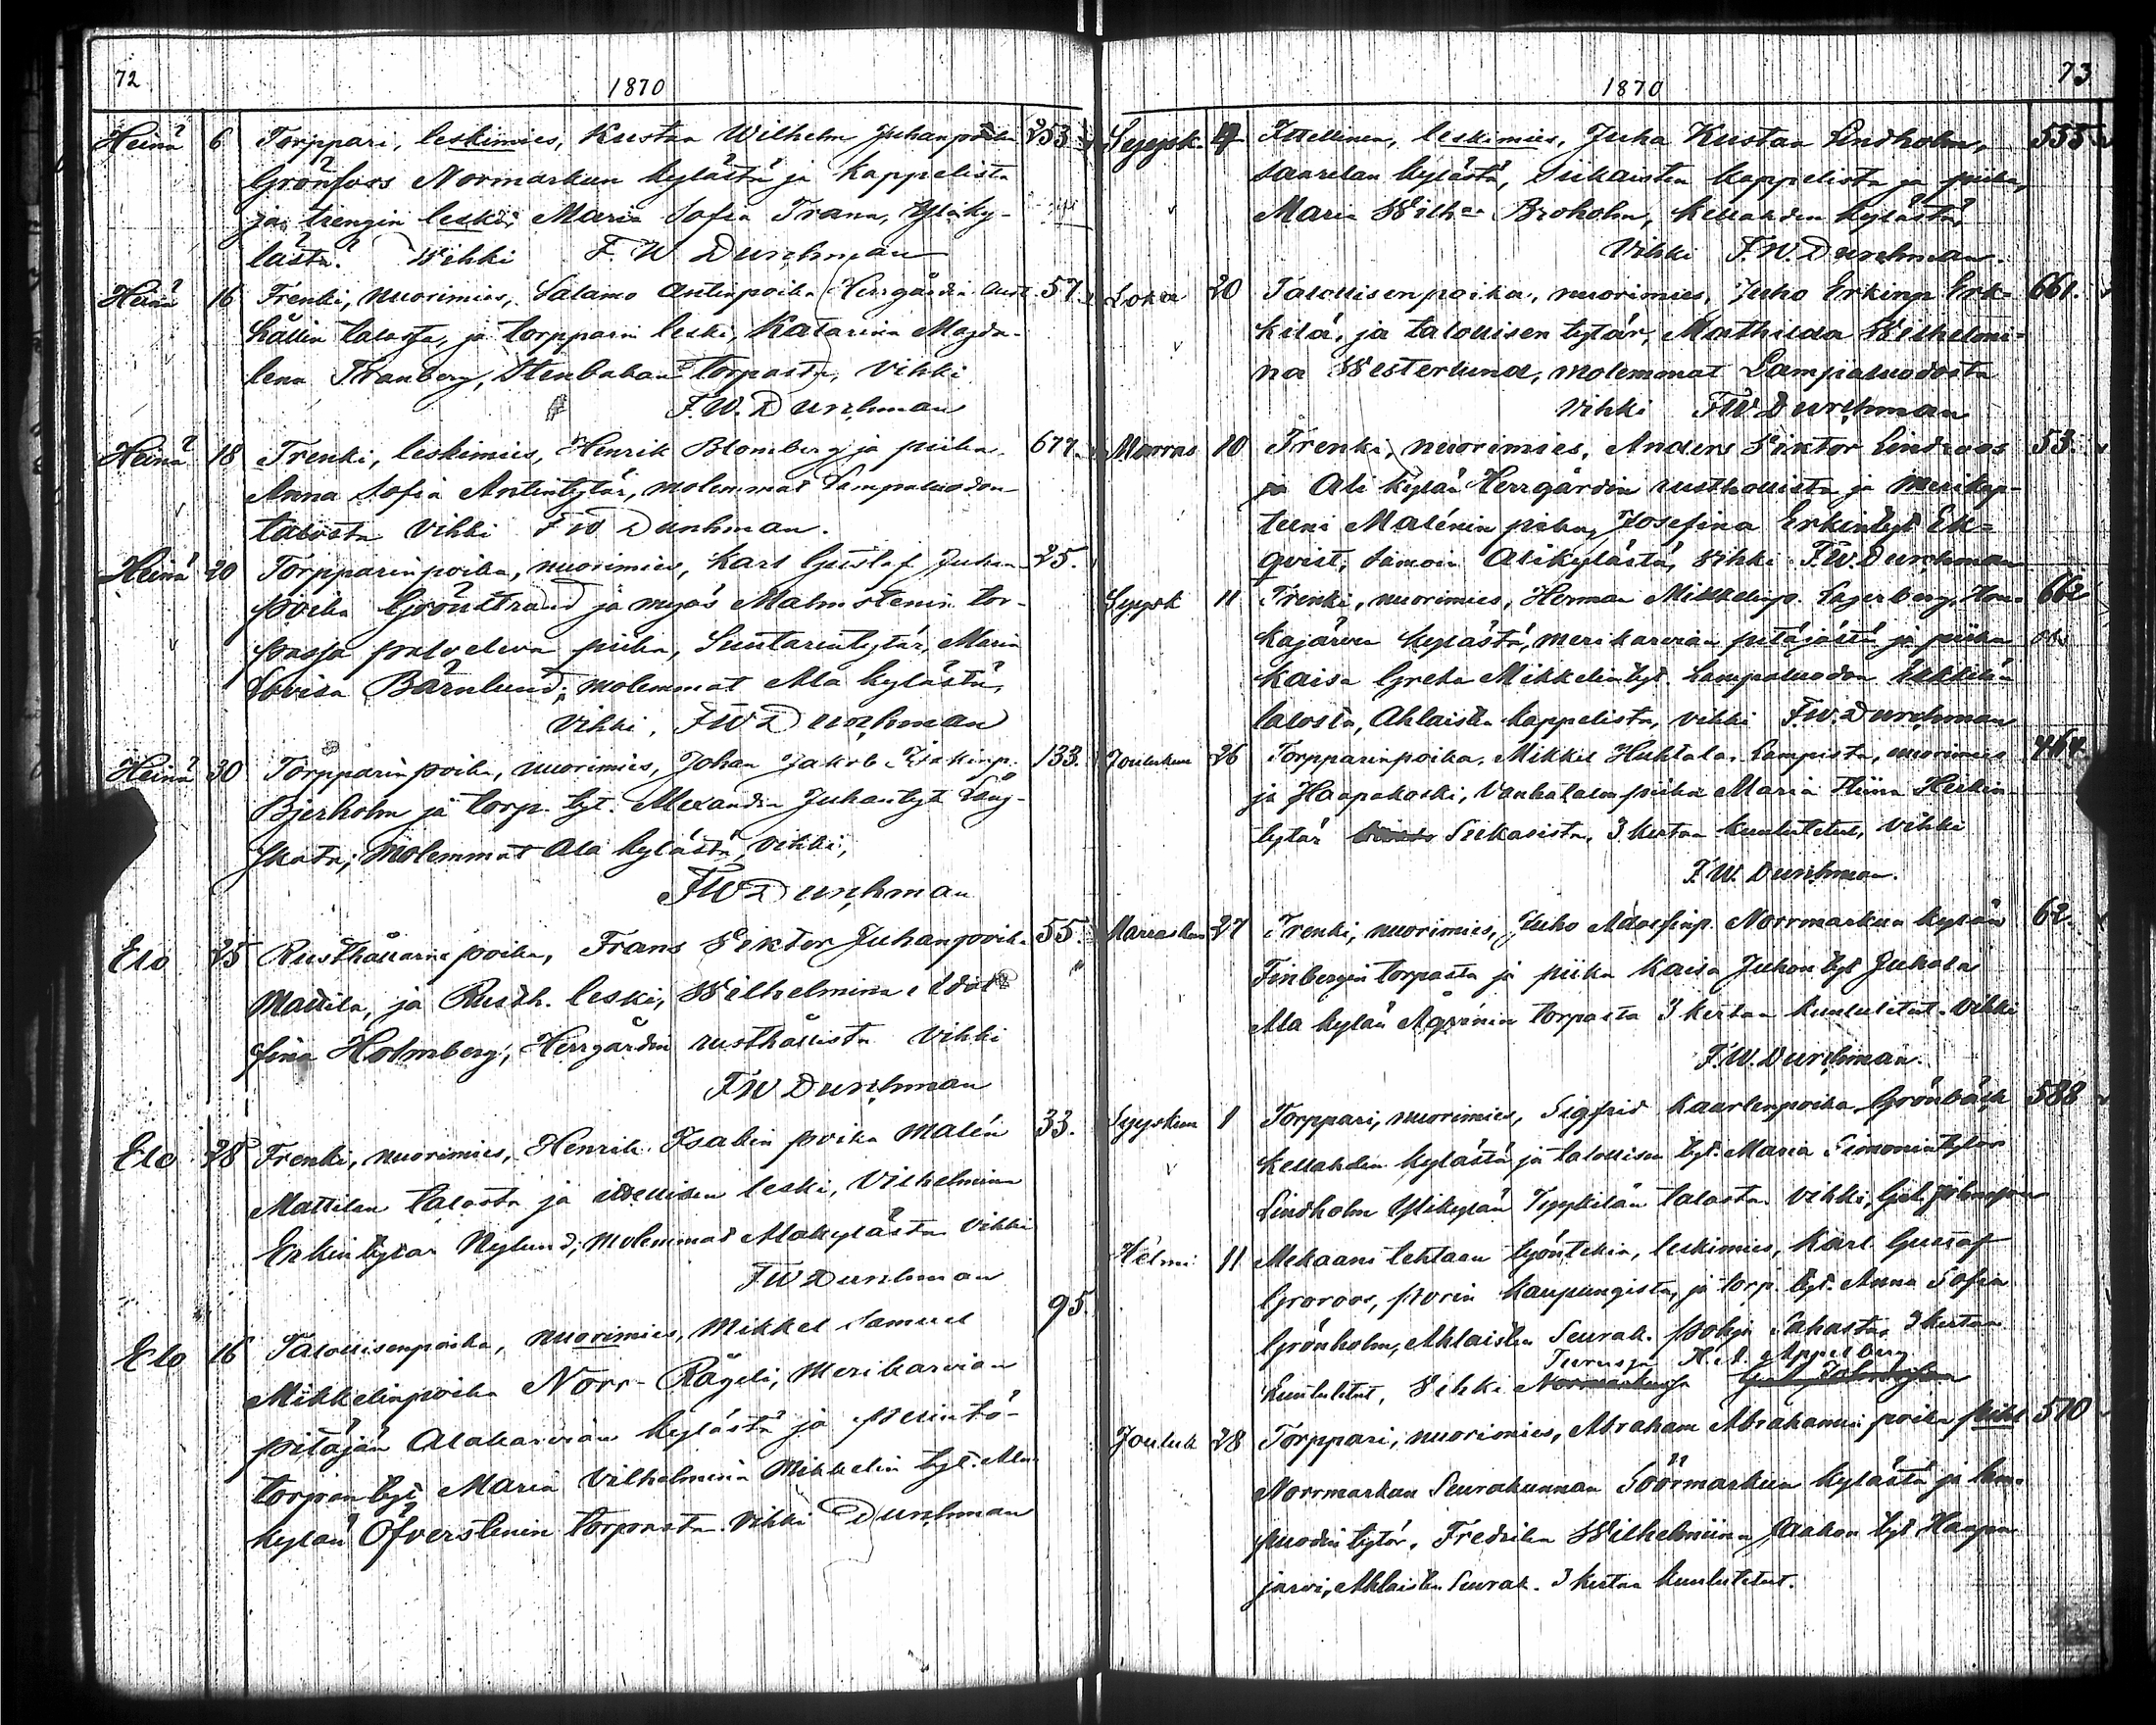 72
1870
Heinä 6 Torppari, leskimies, Kustaa Wilhelm Juhanpoika 253
Grönfors Normarkun kylästä ja kappelista
ja trengin leski Maria Sofia Trana, Yläky-
lästä. Wihki F. W Durchman
Heinä 16 Trenki, nuorimies, Salamo Antinpoika Herrgårdin rust 57.
hållin talosta, ja torpparin leski, Katarina Magda-
lena Tranberg, Stenbakan torpasta, Vihki
F. W. Durchman
Heinä 18 Trenki, leskimies, Henrik Blomberg ja piika 677.
Anna Sofia Antintytär, molemmat Lampaluodon
talosta Vihki F W Durchman.
Heinä 20 Torpparinpoika, nuorimies, Karl Gustaf Juhan 25.
poika Grönstrand ja myös Malmstenin tor-
passa palveleva piika, Suutarintytär, Maria
Lovisa Bärnlund, molemmat Ala kylästä,
Vihki, F W Durchman
Heinä 30 Torpparinpoika, nuorimies, Johan Jakob 133.
Bjerholm ja torp. tyt. Alexandra Juhantyt Lång-
skata; molemmat Ala kylästä, vihki,
F W Durchman
Elo 25 Rusthållarinpoika, Frans Viktor Juhanpoika 55.
Mattila, ja Rusth. leski, Wilhelmina Adol
fina Holmberg, Herrgårdin rusthållista Vihki
F W Durchman
Elo 28 Trenki, nuorimies, Henrik Isakin poika Malén 33.
Mattilan talosta ja itsellisen leski, Vilhelmina
Erkintytär Nylund; molemmat Alakylästä Vihki
F W Durchman
Elo 16 Talollisenpoika, nuorimies, Mikkel Samuel 95.
Mikkelinpoika Norr-Rågeli, Merikarvian
pitäjän Alakarvian kylästä ja perintö-
torpan tyt Maria Vilhelmina Mikkelin tyt. Ala
kylän Öfverstenin torpasta. Vihki Durchman
73
1870
Syysk. 4 Itsellinen, leskimies, Juha Kustaa Lindholm, 555
Saarelan kylästä, Siikaisten kappelista ja piika,
Maria Wilh:a Broholm, Kellahden kylästä,
Vihki F. W. Durchman.
Loka 20 Talollisenpoika, nuorimies, Juho Erkinp Erk= 661.
kilä, ja talollisen tytär, Mathilda Wilhelmi=
na Westerlund, molemmat Lampaluodosta
Vihki F W Durchman
Marras 10 Trenki, nuorimies, Anders Viktor Lindroos 53.
ja Ali kylän Herrgårdin rusthollista ja merikap-
teeni Malénin piika, Josefina Erkintyt Ek=
qvist, samoin Alikylästä, Vihki F. W. Durchman
Syysk 11 Trenki, nuorimies, Herman Mikkelinp. Lagerberg, Hon= 662
kajärven kylästä, Merikarvian pitäjästä ja piika
Kaisa Greta Mikkelintyt. Lampaluodon Erkkilän
talosta, Ahlaisten kappelista, vihki F. W. Durchman
Joulukuu 26 Torpparinpoika, Mikkel Huhtala, Lampista, nuorimies 464.
ja Haapakoski, Vanhatalon piika Maria Stiina Heikin
tytär Siikaisista, 3 kertaa kuulutetut, vihki
F. W. Durchman.
Marraskuu 27 Trenki, nuorimies, Juho Adolfinp. Norrmarkun kylän 62.
Finbergin torpasta ja piika Kaisa Juhon tyt Juhola
Ala kylän torpasta 3 kertaa kuulutetut. Vihki
F. W. Durchman.
Syyskuu 1 Torppari, nuorimies, Sigfrid Kaarlenpoika Grönbäck 588
Kellahden kylästä ja talollisen tyt. Maria Simonintytär
Lindholm Ylikylän Tyykilän talosta Vihki,
Helmi 11 Mekaani tehtaan työntekiä, leskimies, Karl Gustaf
Groroos, Porin kaupungista, ja torp. tyt. Anna Sofia
Grönholm, Ahlaisten Seurak. Pohja Sahasta, 3 kertaa
Turussa K. A. Appelberg
kuulutetut, Vihki Normarkussa
Jouluk 28 Torppari, nuorimies, Abraham Abrahamin poika Pihl 570
Norrmarkun Seurakunnan Söörmarkun kylästä ja lam-
puodin tytär, Fredrika Wilhelmiina Jaakon tyt Haapa
jarvi, Ahlaisten Seurak. 3 kertaa kuulutetut.